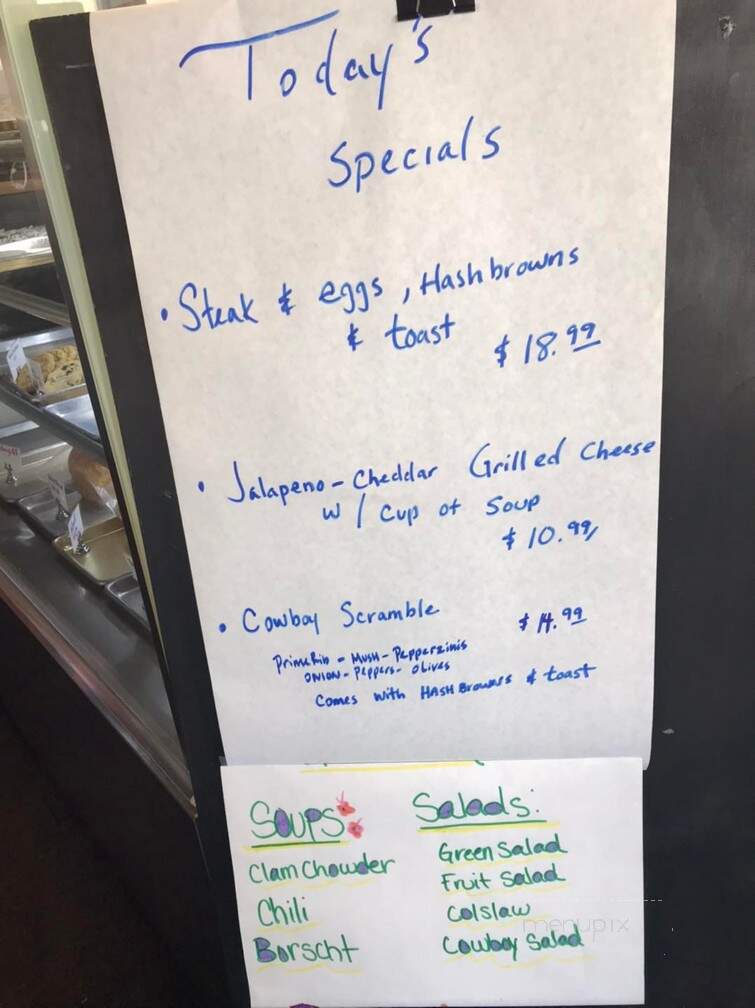 Today's
Specials
• Steak & eggs, Hashbrowns
& toast
$18.99
• Jalapeno-Cheddar Grilled Cheese
w/ Cup of Soup
$10.99
• Cowboy Scramble $14.99
PrimeRib - MUSH - Pepperzinis
ONION - Peppers - OLives
Comes with HASH Browns & toast
Soups Salads:
Clam Chowder Green Salad
Chili Fruit Salad
Borscht Colslaw
Cowboy Salad
menupix